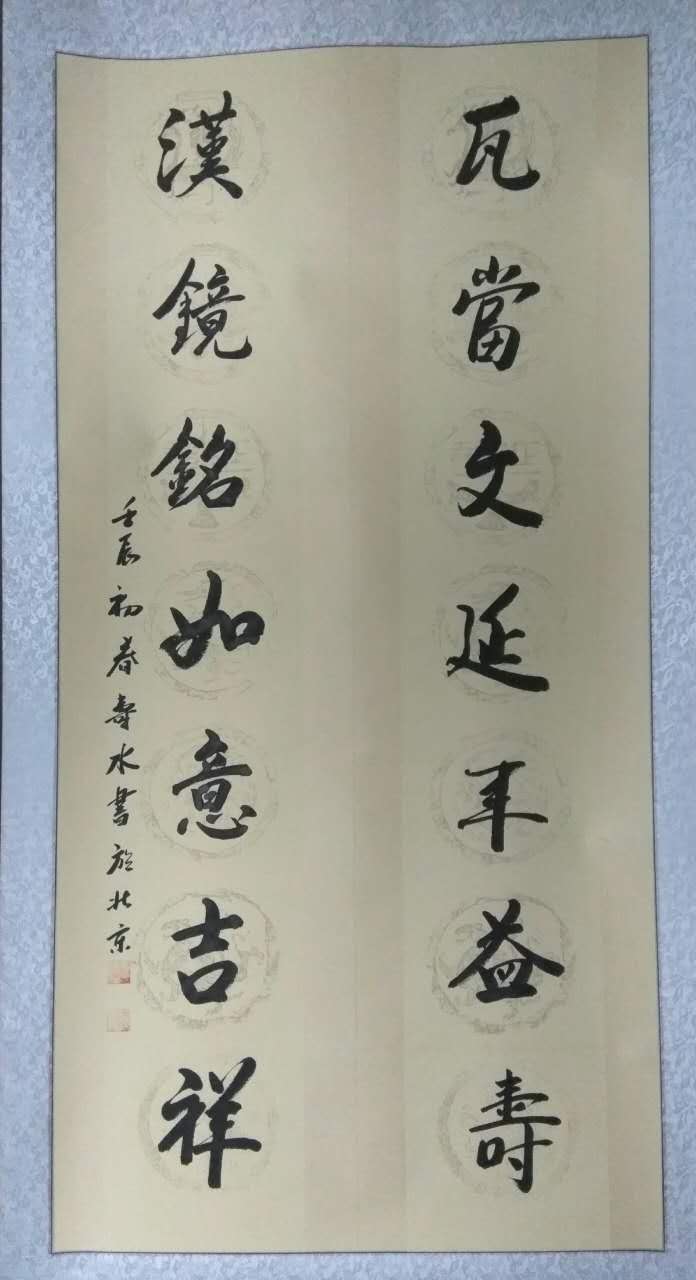 瓦當文延年益壽
漢鏡銘如意吉祥
壬辰初春壽水書於北京